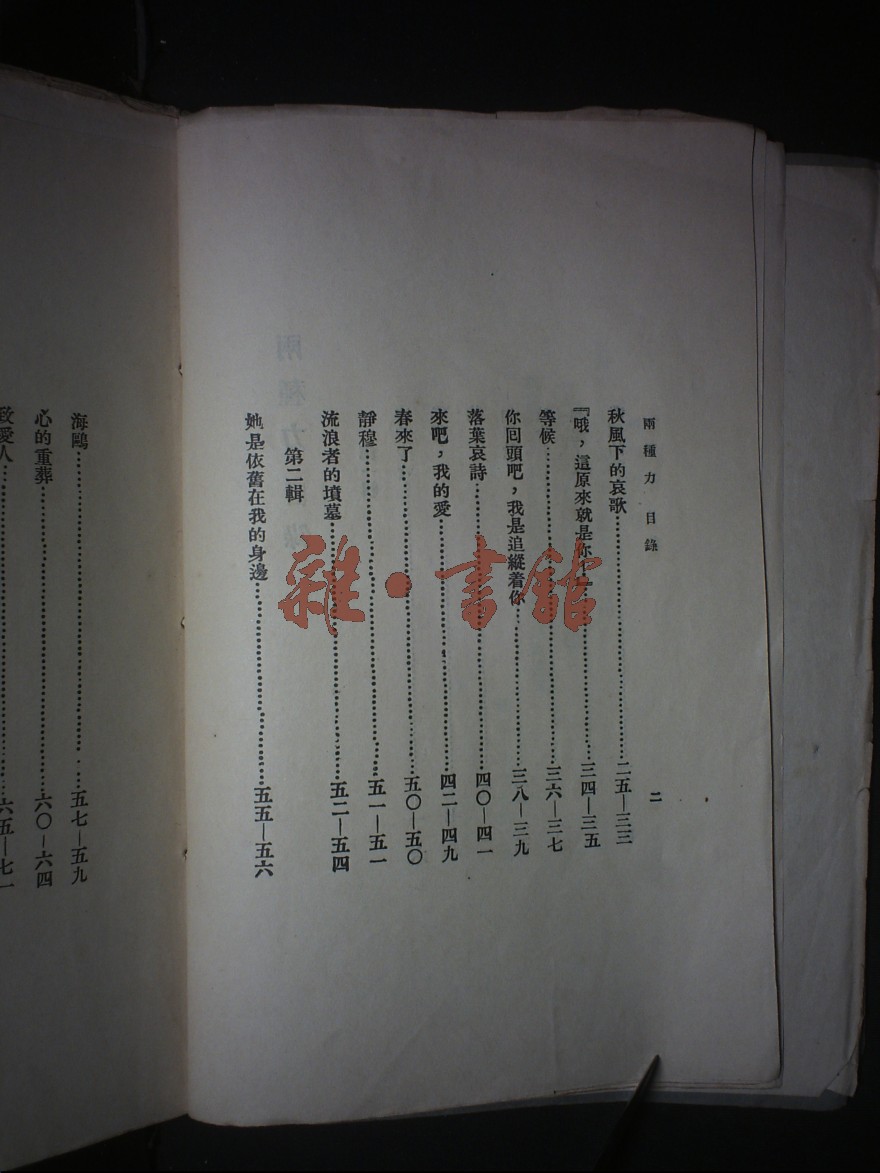 兩種力 目錄
二
秋風下的哀歌……二五—三三
『哦，這原來就是你……三四—三五
等候……三六—三七
你回頭吧，我是追縱着你……三八—三九
落葉哀詩……四〇—四一
來吧，我的愛……四二—四九
春來了……五〇—五〇
靜穆……五一—五一
流浪者的墳墓……五二—五四
第二輯
她是依舊在我的身邊……五五—五六
海鷗……五七—五九
心的重葬……六〇—六四
致愛人……六五—七一
雜·書館